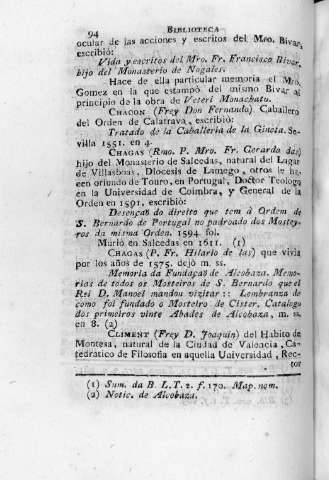 94 BIBLIOTECA
ocular de las acciones y escritos del Mro. Bivar,
escribió:
Vida y escritos del Mro. Fr. Francisco Bivar,
hijo del Monasterio de Nogales.
Hace de ella particular memoria el Mro.
Gomez en la que estampó del mismo Bivar al
principio de la obra de Veteri Monachatu.
CHACON (Frey Don Fernando) Caballero
del Orden de Calatrava, escribió:
Tratado de la Caballeria de la Gineta. Se-
villa 1551. en 4.
CHAGAS (Rmo. P. Mro. Fr. Gerardo das)
hijo del Monasterio de Salcedas, natural del Lugar
de Villasboas, Diocesis de Lamego, otros le ha-
cen oriundo de Touro, en Portugal, Doctor Teologo
en la Universidad de Coimbra, y General de la
Orden en 1591, escribió:
Desençaõ do direito que tem à Ordem de
S. Bernardo de Portugal no padroado dos Mostey-
ros da misma Orden. 1594. fol.
Murió en Salcedas en 1611. (1)
CHAGAS (P. Fr. Hilario de las) que vivia
por los años de 1575. dejó m. ss.
Memoria da Fundaçaõ de Alcobaza. Memo-
rias de todos os Mosteiros de S. Bernardo que el
Rei D. Manoel mandou vizitar:: Lembranza de
como foi fundado o Mosteiro de Cister, Catalogo
dos primeiros vinte Abades de Alcobaza, m. ss.
en 8. (2)
CLIMENT (Frey D. Joaquin) del Habito de
Montesa, natural de la Ciudad de Valencia, Ca-
tedratico de Filosofia en aquella Universidad, Rec-
tor
(1) Sum. da B. L. T. 2. f. 170. Map. nom.
(2) Notic. de Alcobaza.